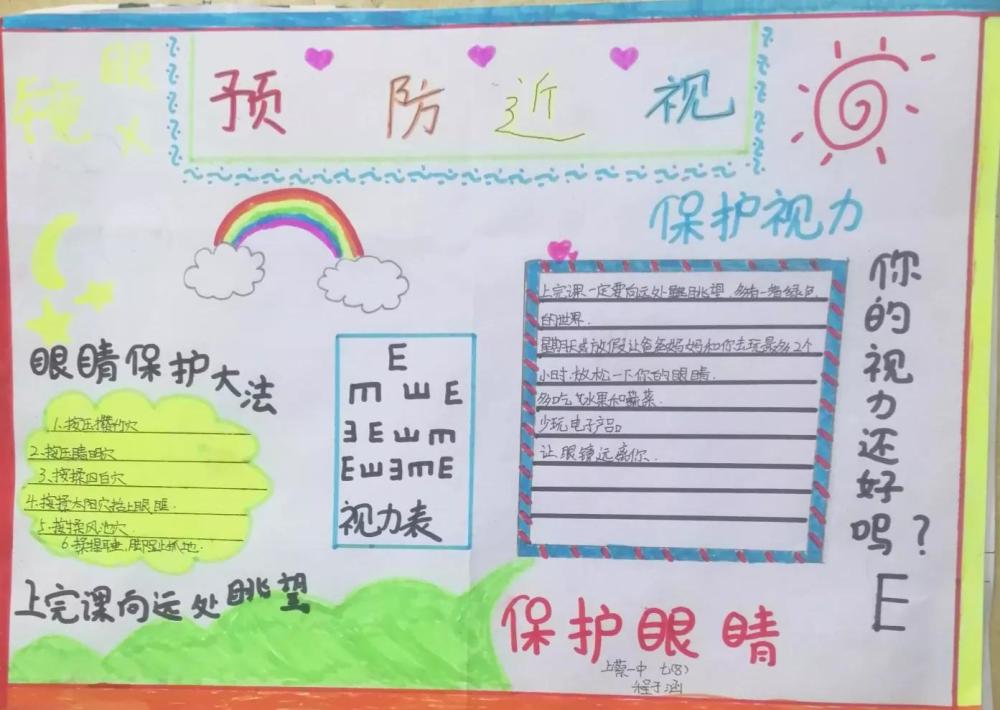 预防近视
保护视力
上完课一定要向远处眺望.多看一看绿色
的世界.
星期天或放假让爸爸妈妈和你去玩最多2个
小时.放松一下你的眼睛.
多吃水果和蔬菜.
少玩电子产品
让眼镜远离你.
你的视力还好吗？
E
眼睛保护大法
1.按压攒竹穴
2.按压睛明穴
3.按揉四白穴
4.按揉太阳穴刮上眼眶.
5.按揉风池穴
6.揉捏耳垂,脚趾抓地.
E
m ш E
Ǝ E ш m
E ш Ǝ m E
视力表
上完课向远处眺望
保护眼睛
上蔡一中 七(8)
程于涵